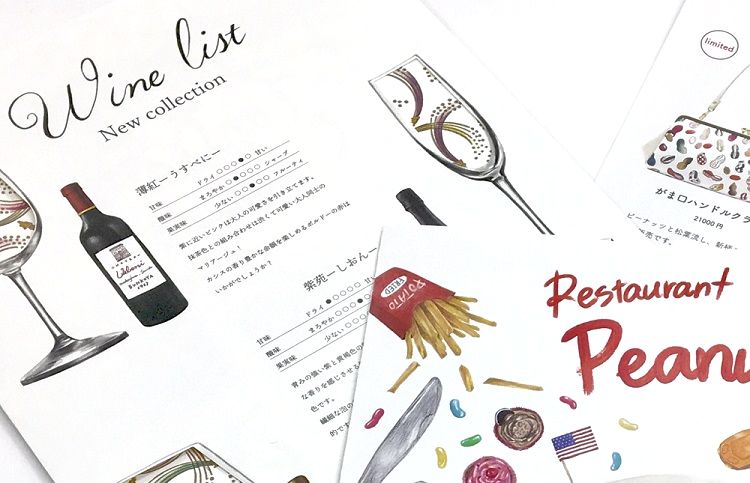 Wine list
New collection
薄紅ーうすべにー
甘味 ドライ ○○○●○ 甘い
酸味 まろやか ○●○○○ シャープ
果実味 少ない ○○●○○ フルーティ
紫に近いピンクは大人の可愛さを引き立てます。
抹茶色との組み合わせは渋くて可愛い大人同士の
マリアージュ！
カシスの香り豊かな余韻を楽しめるボルドーの赤は
いかがでしょうか？
紫苑ーしおんー
甘味 ドライ ●○○○○ 甘い
酸味 まろやか ○○○
果実味 少ない ○○
青みの強い紫と黄褐色の
な香りを感じさせる
色です。
繊細な泡の
的です
Usubeni
BORDEAUX
limited
がま口ハンドルクラ
21000円
ピーナッツと松葉流し、新柄
売です。
POTATO
FRIED
Restaurant
Peanu